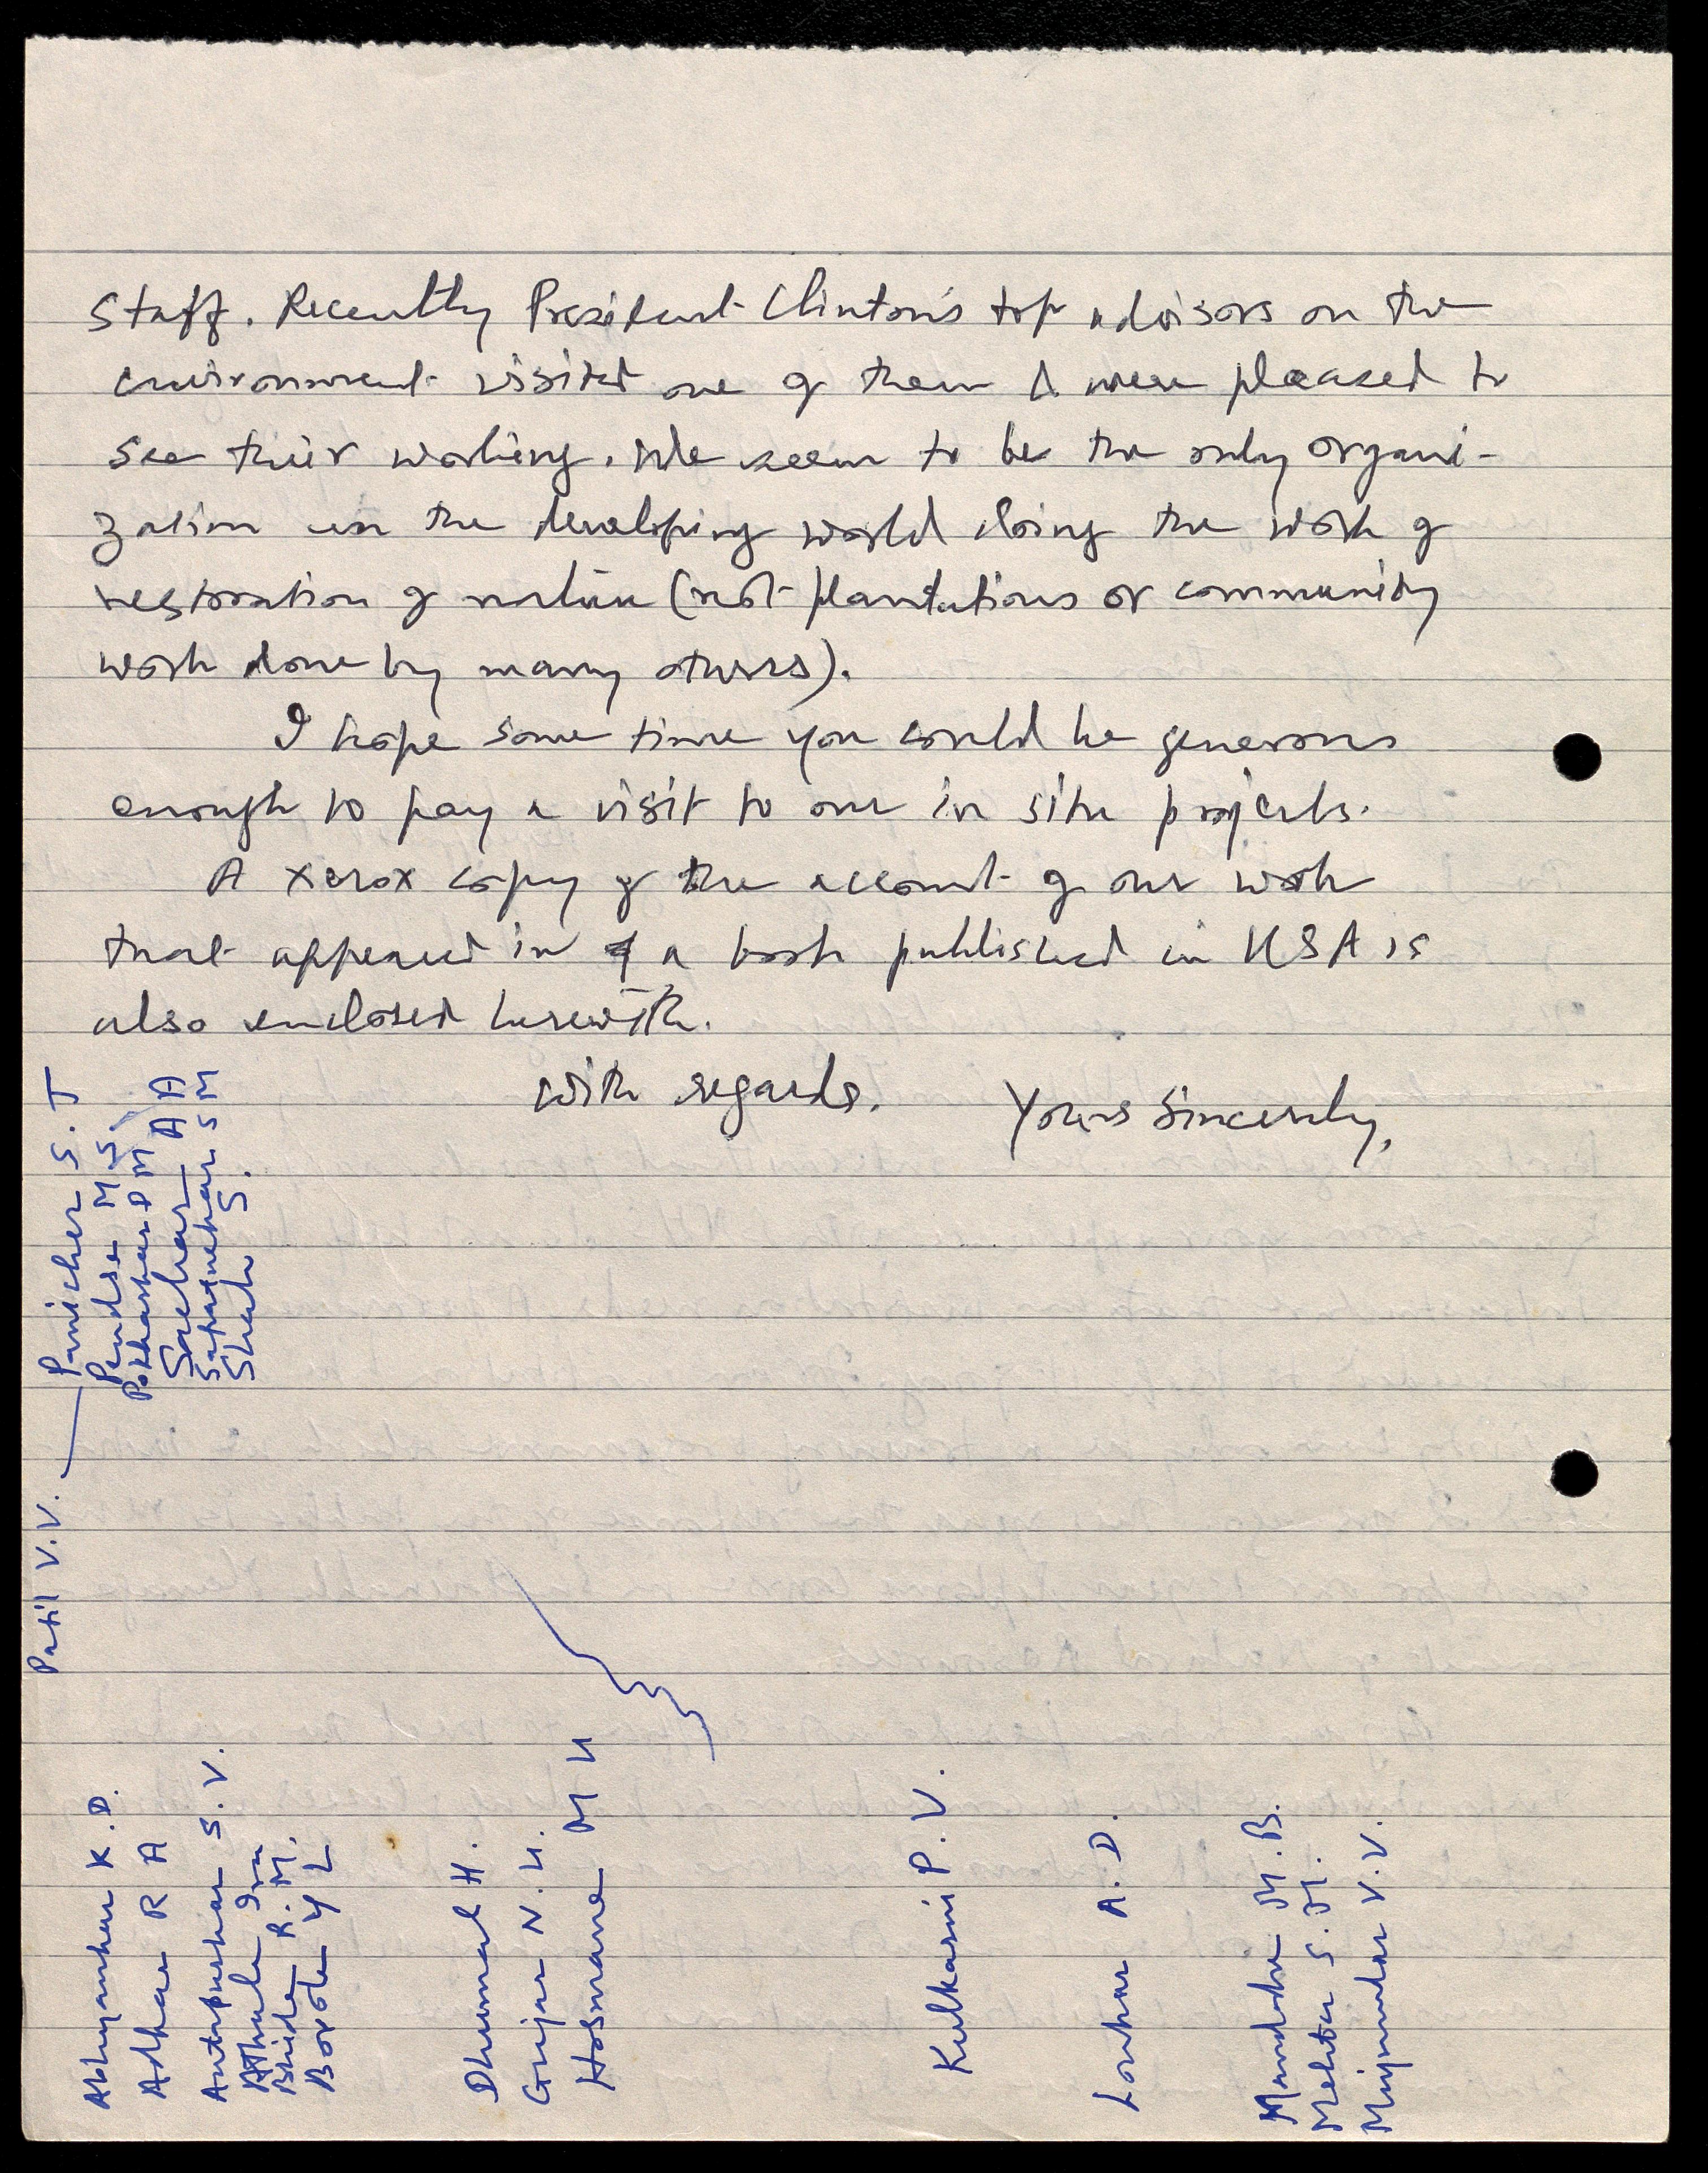 Staff. Recently President Clinton's top advisors on the
environment visited one of them & were pleased to
see their working. We seem to be the only organi-
zation in the developing world doing the work of
restoration of nature (not plantations or community
work done by many others).
I hope some time you could be generous
enough to pay a visit to our in situ projects.
A xerox copy of the account of our work
that appeared in a book published in USA is
also enclosed herewith.
With regards.
Yours Sincerely,
Patil V.V.
Panicker S. T
Pendse M. S.
Pokharkar D M
Sachar A A A
Sapatnekar S M
Shah S.
Abhyankar K. D.
Adkar R A
Antapurkar S. V.
Athale Ira
Bhide R. M.
Borole Y L
Dhumal H.
Gujar N. U.
Hosmane M U
Kulkarni P. V.
Lonkar A. D.
Mundhe M. B.
Mehta S. M.
Mujumdar V. V.